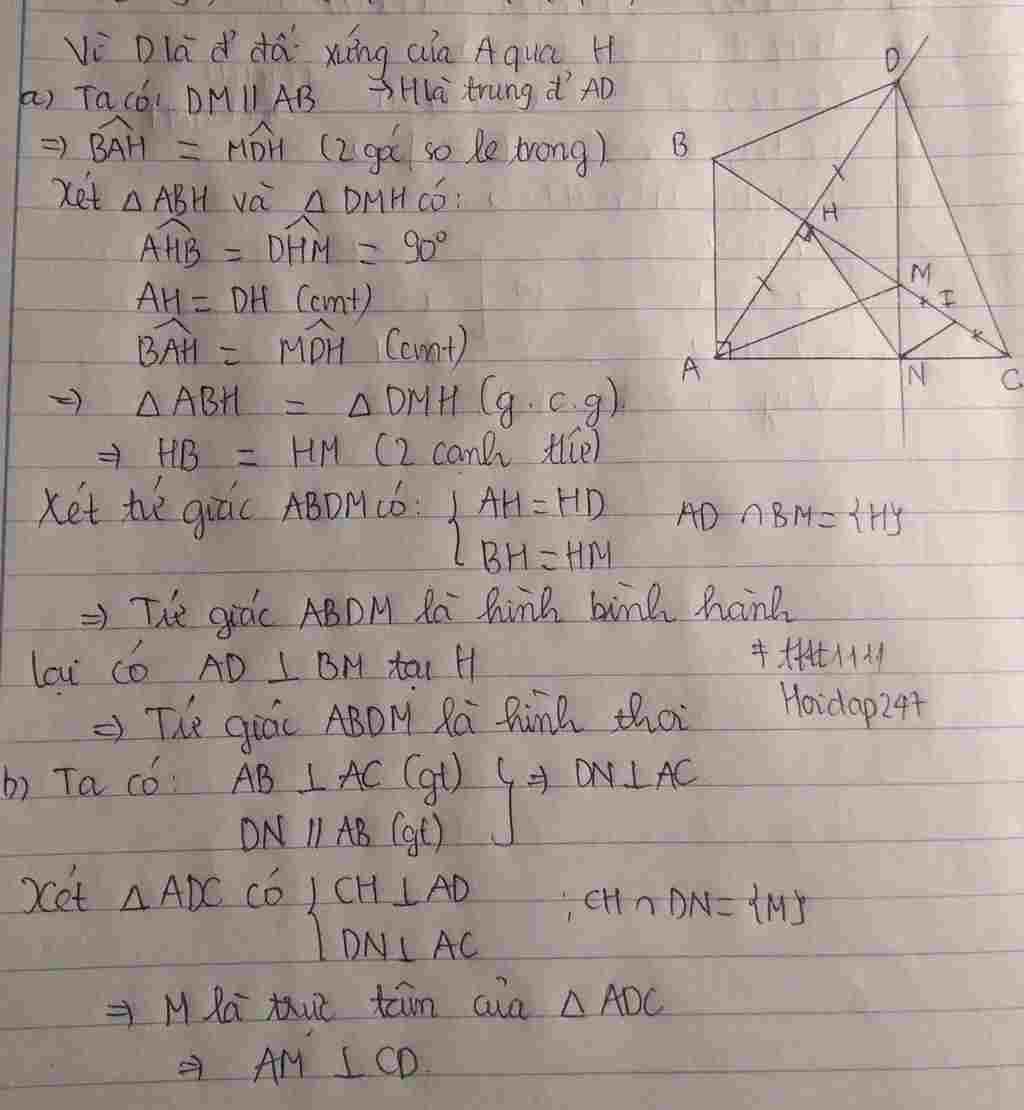 Vì D là đ' đối xứng của A qua H
a) Ta có: DM // AB → H là trung đ' AD
⇒ BAH = MDH (2 góc so le trong)
Xét Δ ABH và Δ DMH có:
AHB = DHM = 90°
AH = DH (cmt)
BAH = MDH (cmt)
⇒ Δ ABH = Δ DMH (g.c.g)
⇒ HB = HM (2 cạnh t/ứ)
Xét tứ giác ABDM có: { AH = HD AD ∩ BM = {H}
BH = HM
⇒ Tứ giác ABDM là hình bình hành
lại có AD ⊥ BM tại H
⇒ Tứ giác ABDM là hình thoi
Hoidap247
b) Ta có: AB ⊥ AC (gt) } ⇒ DN ⊥ AC
DN // AB (gt)
Xét Δ ADC có { CH ⊥ AD ; CH ∩ DN = {M}
DN ⊥ AC
⇒ M là trực tâm của Δ ADC
⇒ AM ⊥ CD.
D
B
H
M
I
A
N
C